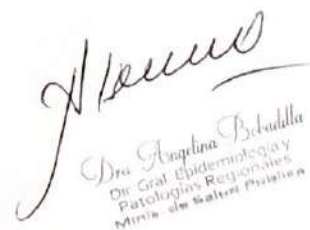 Dra Angelina Bobadilla
Dir Gral Epidemiologia y
Patologias Regionales
Minis. de Salud Publica